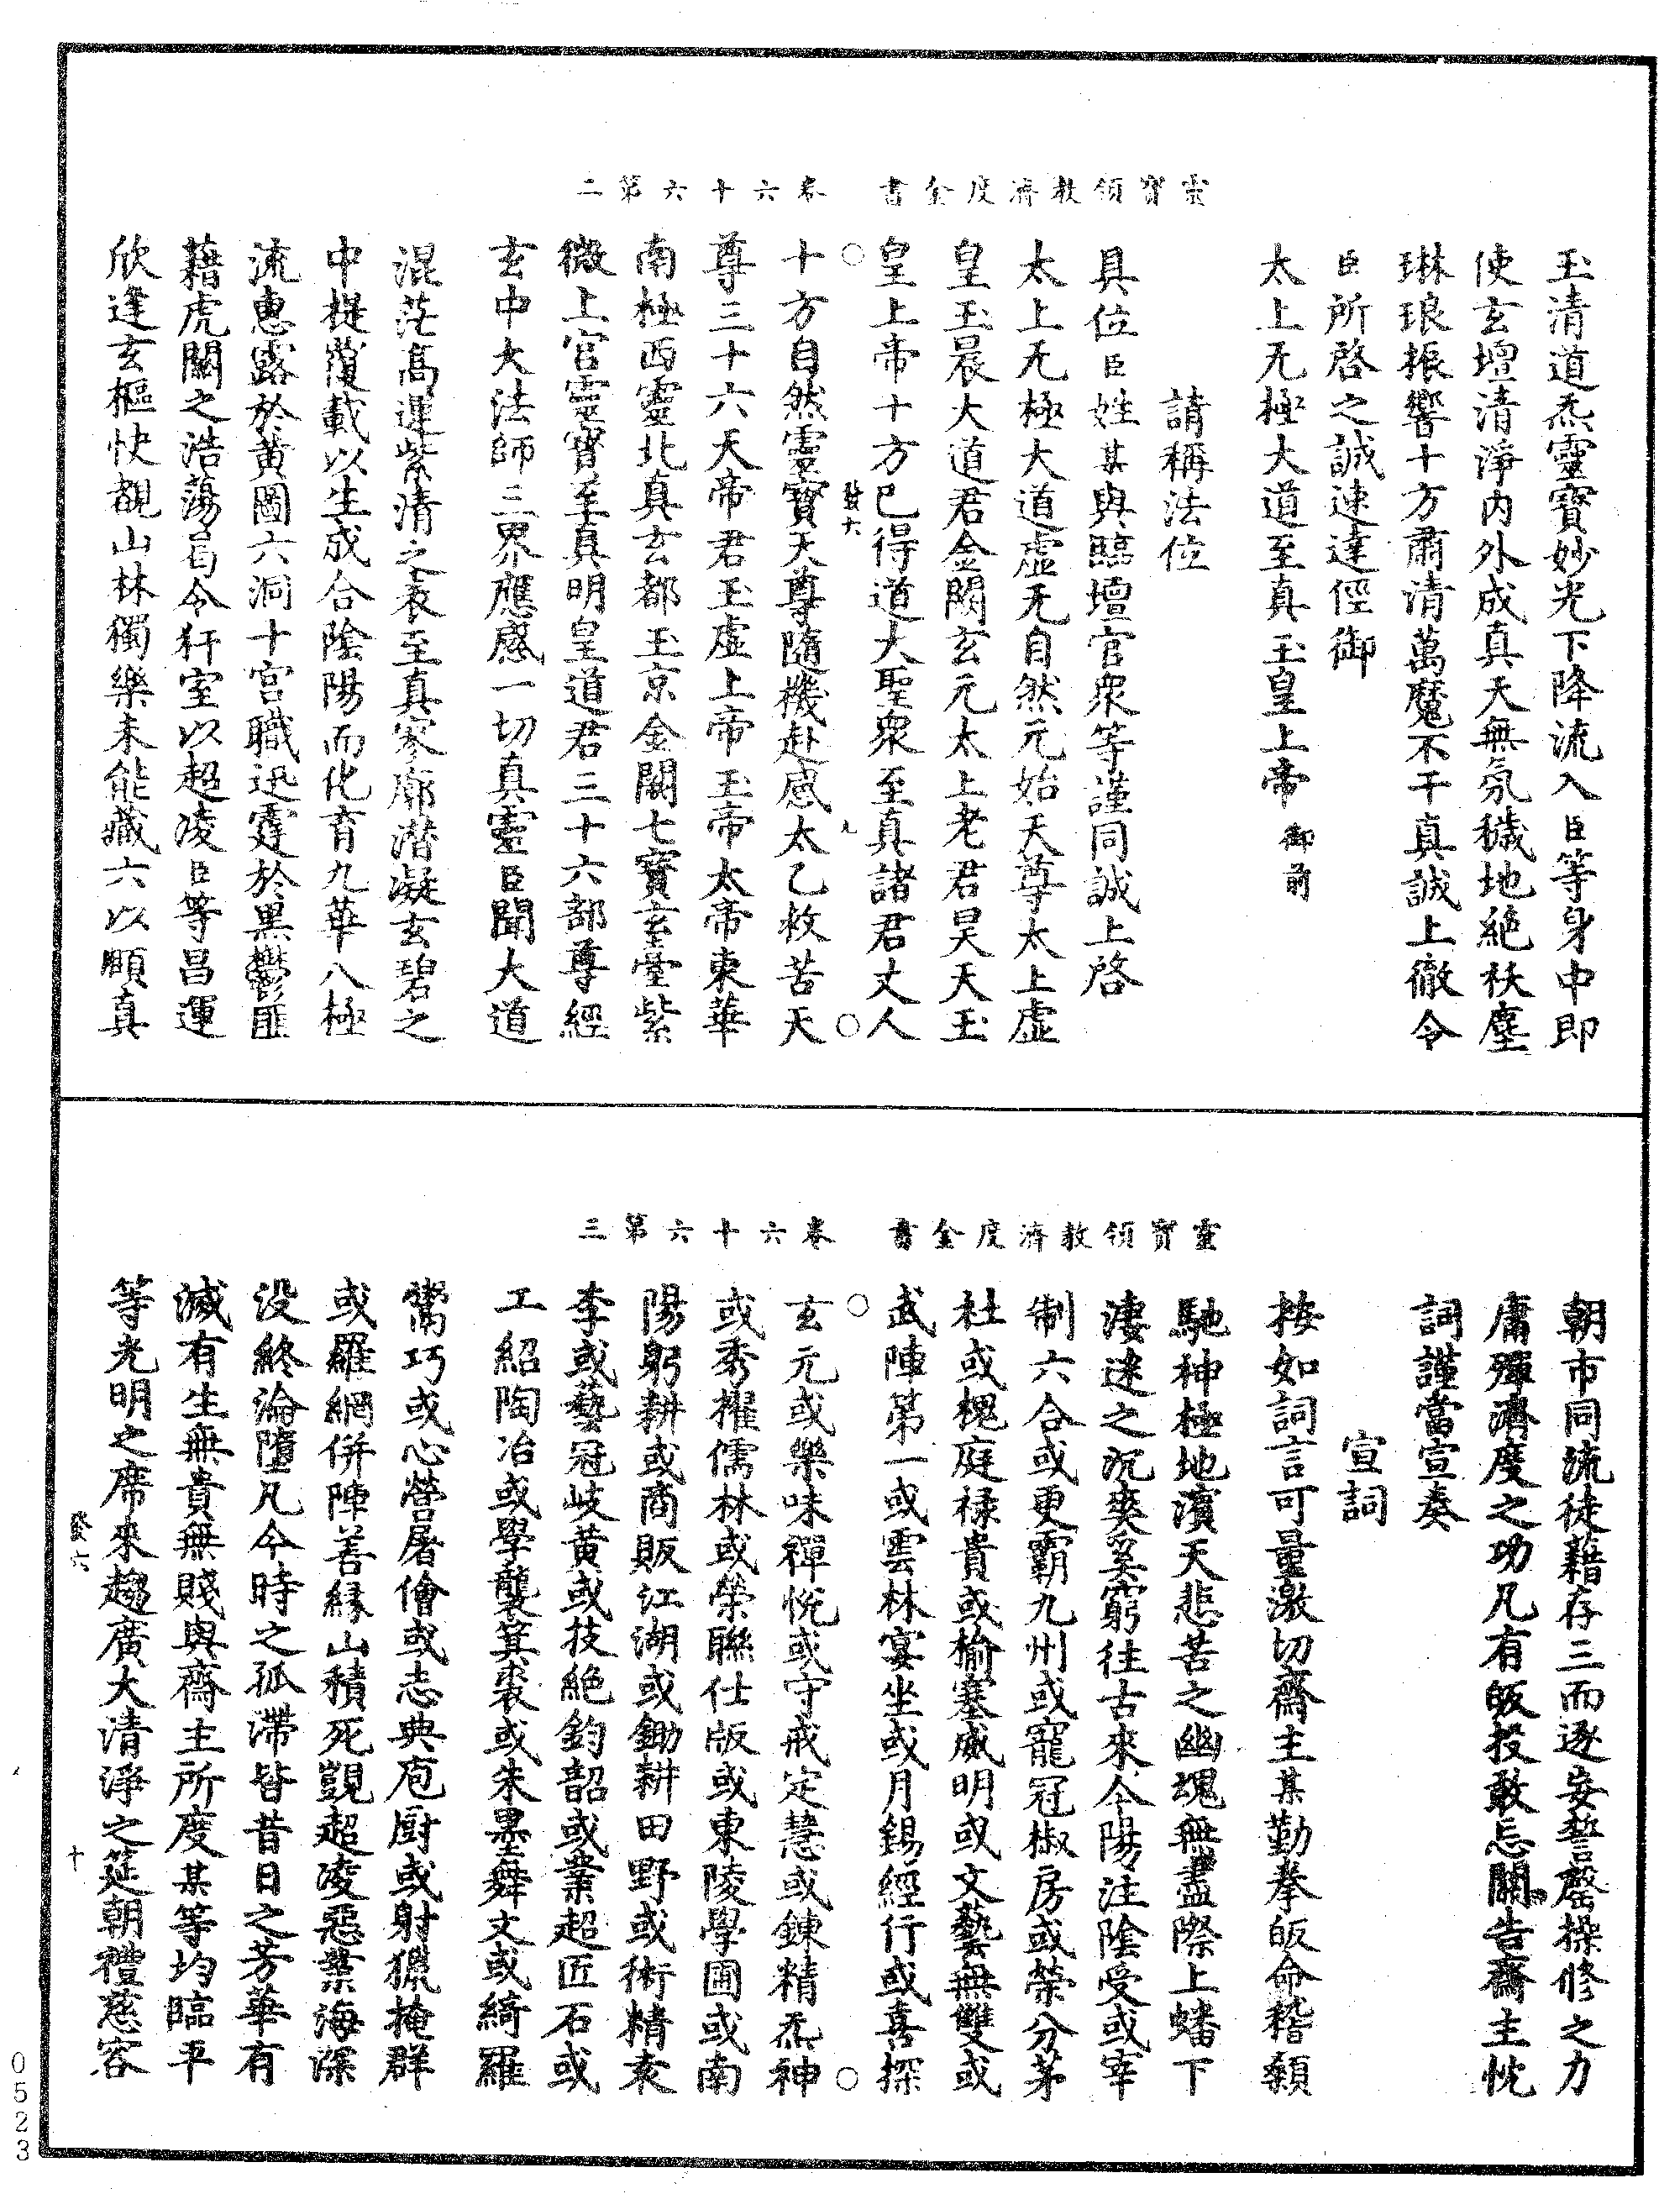 靈寶領教濟度金書　卷六十六第二
玉清道炁靈寶妙光下降流入臣等身中即
使玄壇清淨内外成真天無氛穢地絶祅塵
琳琅振響十方肅清萬魔不干真誠上徹令
臣所啓之誠速達徑御
太上无極大道至真玉皇上帝　御前
請稱法位
具位臣姓某與臨壇官衆等謹同誠上啓
太上无極大道虚无自然元始天尊太上虚
皇玉晨大道君金闕玄元太上老君昊天玉
皇上帝十方已得道大聖衆至真諸君丈人
十方自然靈寶天尊隨機赴感太乙救苦天
尊三十六天帝君玉虚上帝玉帝太帝東華
南極西靈北真玄都玉京金闕七寶玄臺紫
微上宫靈寶至真明皇道君三十六部尊經
玄中大法師三界應感一切真靈臣聞大道
混茫高運紫清之表至真寥廓潜凝玄碧之
中提覆載以生成合陰陽而化育九華八極
流惠露於黄圖六洞十宫職迅霆於黒鬱匪
藉虎關之浩蕩曷令犴室以超凌臣等昌運
欣逢玄樞快覩山林獨樂未能藏六以頤真
靈寶領教濟度金書　卷六十六第三
朝市同流徒藉存三而逐妄誓罄操修之力
庸殫濟度之功凡有皈投敢忘關告齋主忱
詞謹當宣奏
宣詞
按如詞言可量激切齋主某勤拳皈命稽顙
馳神極地濱天悲苦之幽魂無盡際上蟠下
淒迷之沉爽奚窮往古來今陽注陰受或宰
制六合或更霸九州或寵冠椒房或榮分茅
社或槐庭禄貴或榆塞威明或文藝無雙或
武陣第一或雲林宴坐或月錫經行或喜探
玄元或樂味禪悦或守戒定慧或錬精炁神
或秀擢儒林或榮聯仕版或東陵學圃或南
陽躬耕或商販江湖或鋤耕田野或術精袁
李或藝冠岐黄或技絶鈞韶或業超匠石或
工紹陶冶或學襲箕裘或朱墨舞文或綺羅
鬻巧或心營屠儈或志典庖厨或射獵掩群
或羅網併陣善緣山積死覬超凌惡業海深
没終淪墮凡今時之孤滯皆昔日之芳華有
滅有生無貴無賤與齋主所度某等均臨平
等光明之席來趨廣大清淨之筵朝禮慈容
發六
九
發六
十
0523